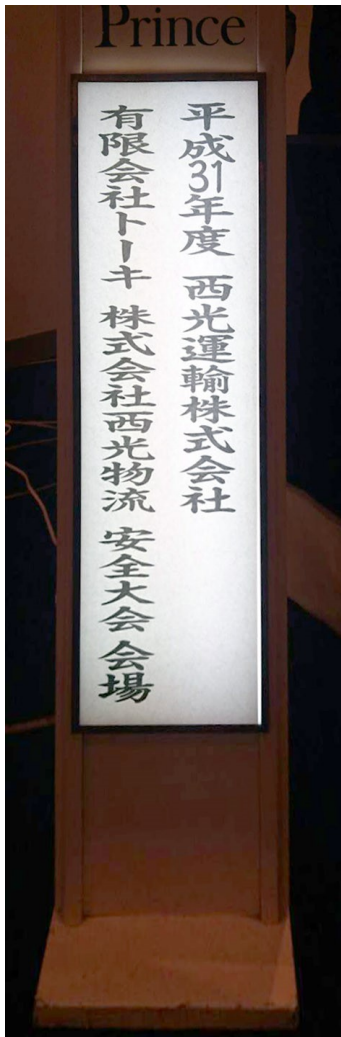 Prince
平成31年度 西光運輸株式会社
有限会社トーキ 株式会社西光物流 安全大会 会場